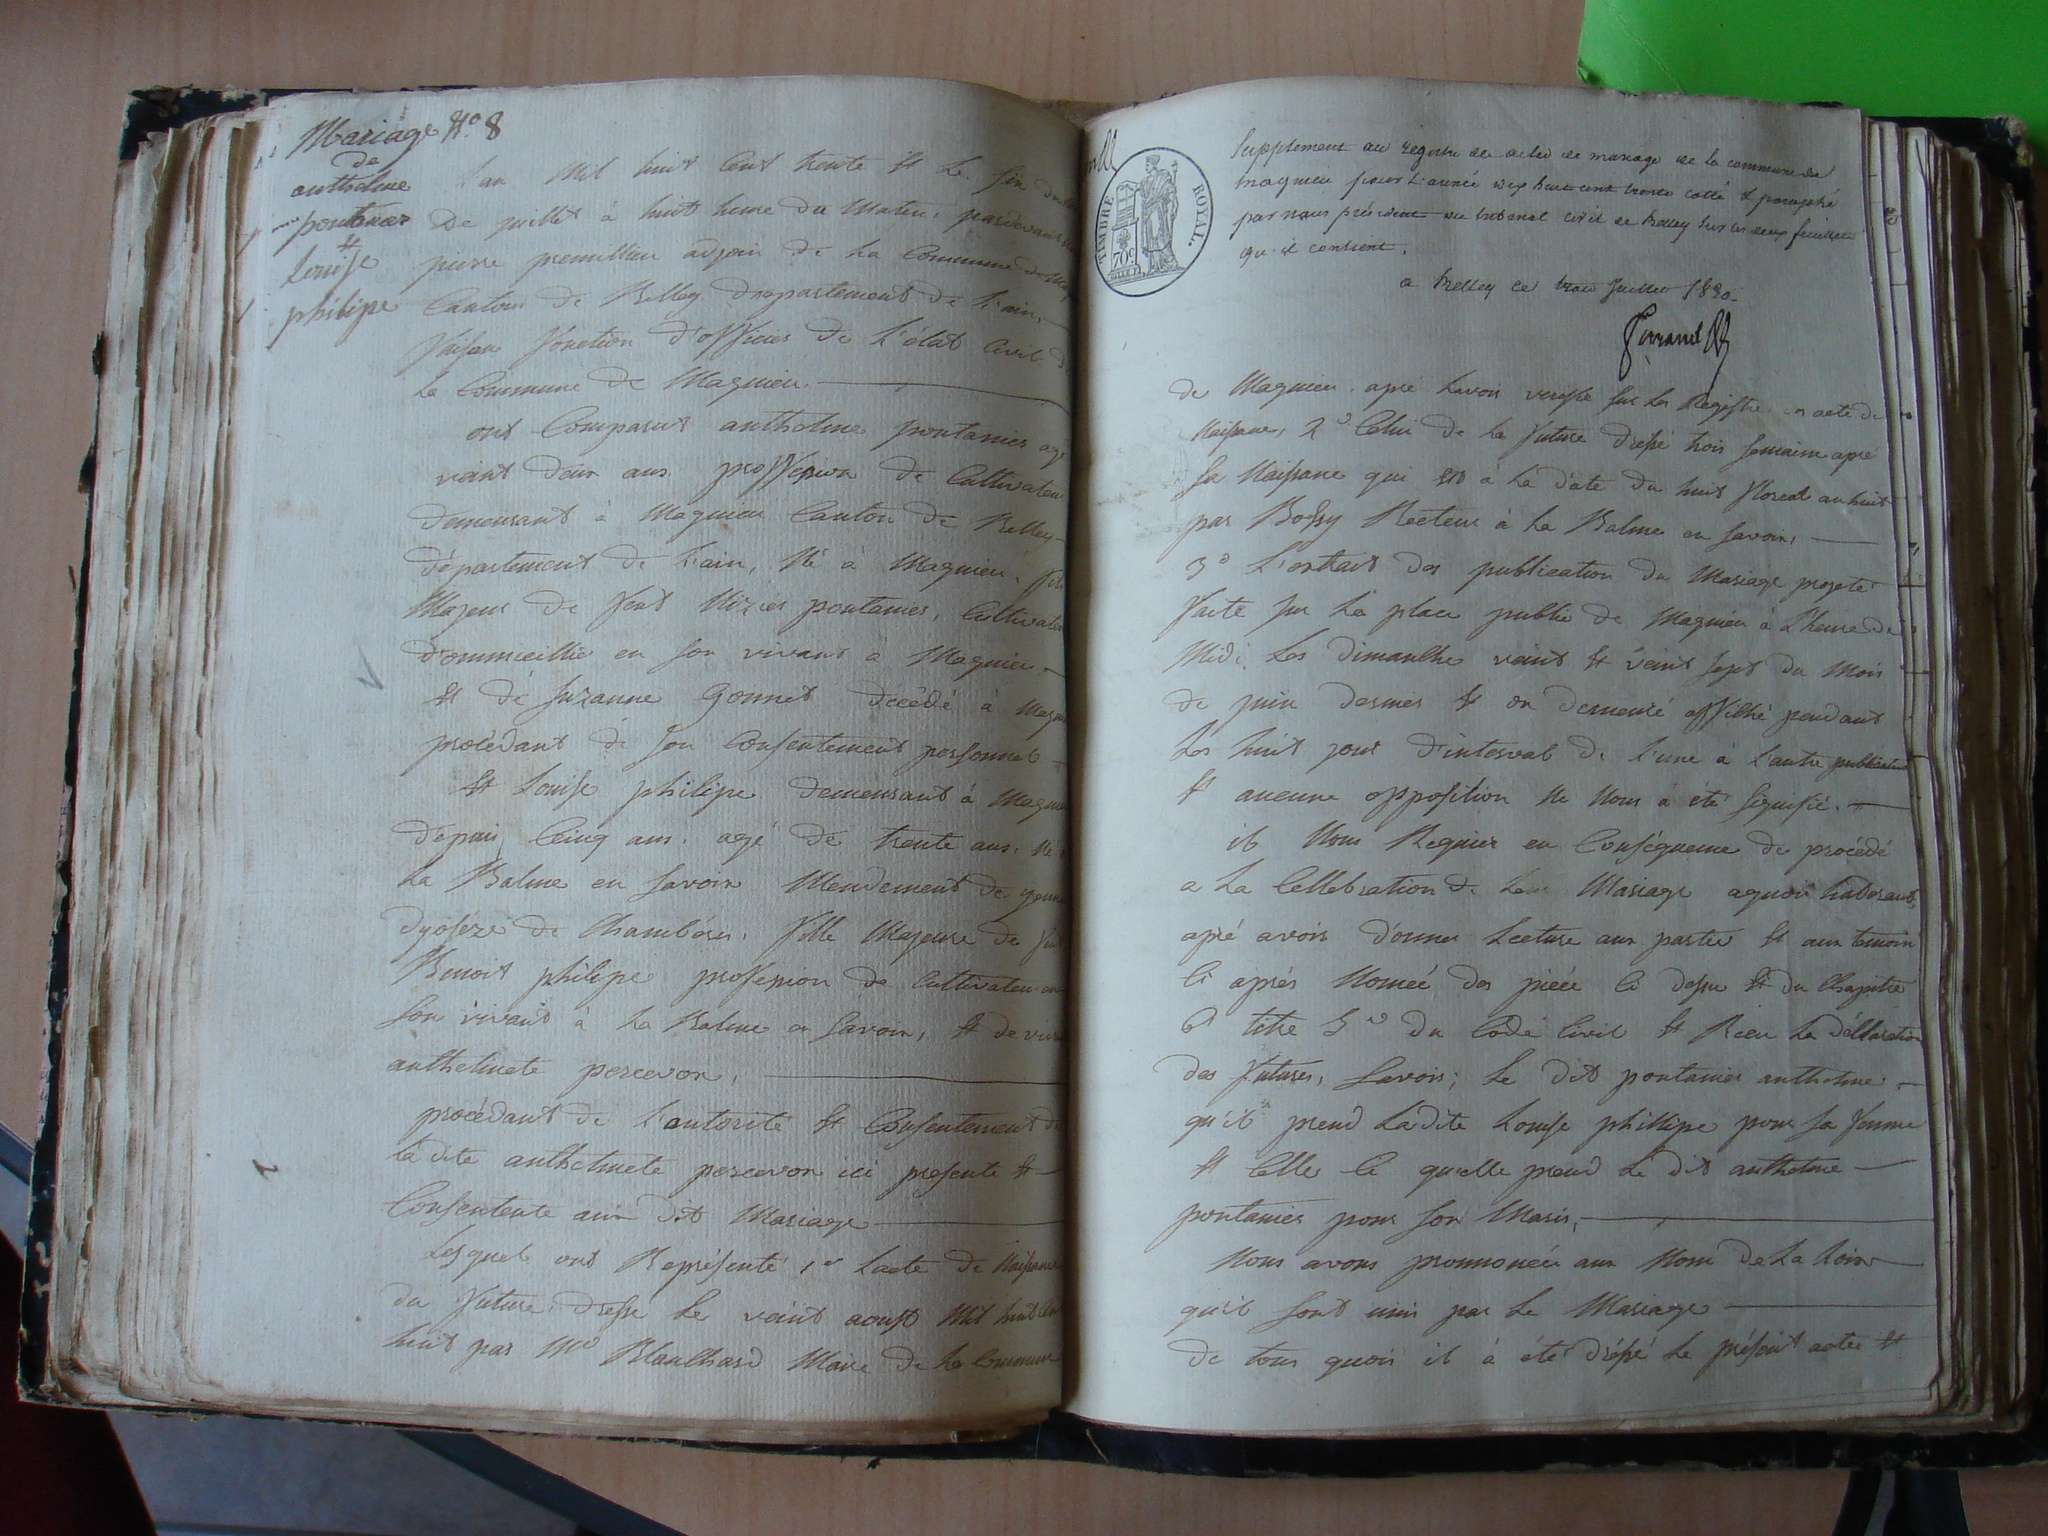 Mariage No 8
de
anthelme
pontanier
et
Louise
philipe
L'an Mil huit Cent trente et Le six du
De juillet à huit heure du Matin, pardevant
pierre premillieu adjoin de La Commune de
Canton de Belley departement de L'ain,
faisan fonction d'officier de L'état Civil de
La Commune de Magnieu.
ont Comparut anthelme pontanier agé
veint deux ans proffesion de Cultivateur
demeurant à Magnieu Canton de Belley
département de L'ain, Né à Magnieu, fils
Majeur de feut Nizier pontanier, Cultivateur
d'ommicillié en son vivant à Magnieu
et dé Suzanne Gonnet décédé à Magnieu
procédant dé son Consentement personnel
et Louise philipe demeurant à Magnieu
depuis Cinq ans. agé de trente ans. Né
La Balme en Savoix Mendement de yenne
dyosèze de Chambéry. fille Majeure de feut
Benoit philipe profesion de Cultivateur en
son vivant à La Balme en Savoix, et de vivante
anthelmete percevon.
procédant de L'autorité et Consentement de
La dite anthelmete percevon ici presente et
Consentente aux dit Mariage
Lesquel ont Représenté 1er Lacte de Naissance
du futur dressé Le veint aoust Mil huit Cent
huit par Mr Blanchard Maire de La Commune
TIMBRE ROYAL.
70c.
Supplement au registre des actes de mariage de la commune de
magnieu pour l'année mil huit cent trente cotté et paraphé
par nous président du tribunal civil de Belley sur les deux feuillets
qu'il contient.
a Belley ce trois juillet 1830.
de Magnieu. apré Lavoir verifié sur Les Registre en acte de
Naissance, 2o Celui de La future dressé trois semaine apré
sa Naissance qui est à La date du huit floreal an huit
par Bossy Recteur à La Balme en Savoix,
3o L'extrait des publication du Mariage projeté
faite sur La place public de Magnieu à L'heure de
Midi. Les dimanche veint et veint sept du Mois
de juin dernier et on demeuré affiché pendant
Les huit jour d'interval de L'une à L'autre publication
et aucune opposition Ne Nous à été signifié.
ils Nous Requier en Conséquence de procédé
a La Cellebration de Leur Mariage aquoi hadérant,
apré avoir donner Lecture aux partie et aux temoin
Ci après Nomée des pièce Ci dessu et du Chapitre
6 titre 5me du Code Civil et Recu La déllaration
des futures, Savoir; Le dit pontanier anthelme
qu'il prend Ladite Louise phillipe pour sa femme
et Celle Ci qu'elle prend Le dit anthelme
pontanier pour son Maris,
Nous avons pronnoncée aux Nom de La Loix
qu'il sont unis par Le Mariage
de tous quoi il à été dréssé Le présent acte et